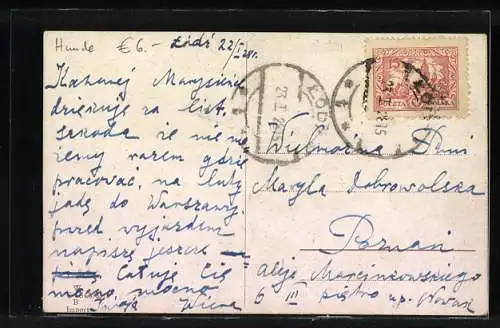 Hunde € 6.- Łódź 22/I 28 r.
Kochanej Marysieńce
dziękuję za list,
szkoda że nie
jemy razem gdzie
pracować, na luty
jadę do Warszawy.
przed wyjazdem
napiszę jeszcze
Całuję Cię
mocno, mocno
Wielmożna Pani
Maryla Dobrowolska
Poznań
aleje Marcinkowskiego
6 III piętro u p. Nowak
ŁÓDŹ
15
POCZTA POLSKA
Import